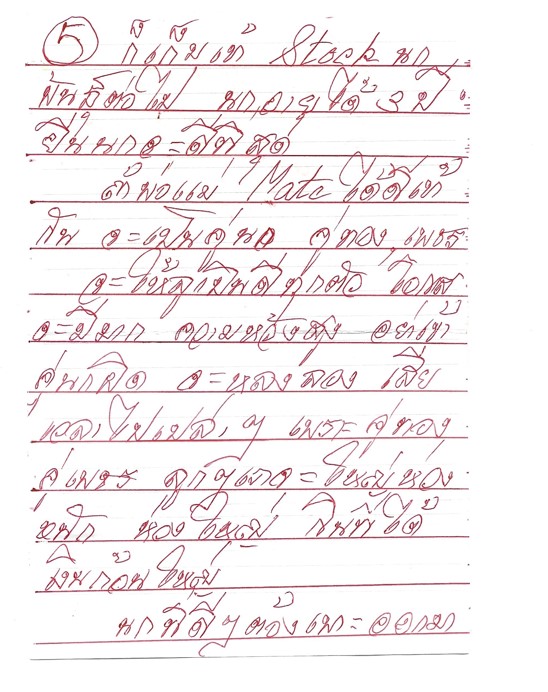 ⑤ ก็เก็บเข้ Stock นก
พันธ์ต่อไป นกอายุได้ 3 ปี
ยืนนกจะดีที่สุด
ถ้าพ่อแม่ Mate ได้ดีเข้
กัน จะเป็นคู่นก คู่ทอง เพชร
จะให้ลูกบินดีทุกตัว โอกส
จะมีมาก ความหวังสูง อย่าเข้
คู่นกผิด จะหลงลอง เสีย
เวลาไปเปล่าๆ เพราะคู่ทอง
คู่เพชร ลูกๆเราจะใหม่
ห้องใหม่ กินพี้ได้
เงินก้อนใหม่
นกที่ดีๆ ต้องเพาะออกมา